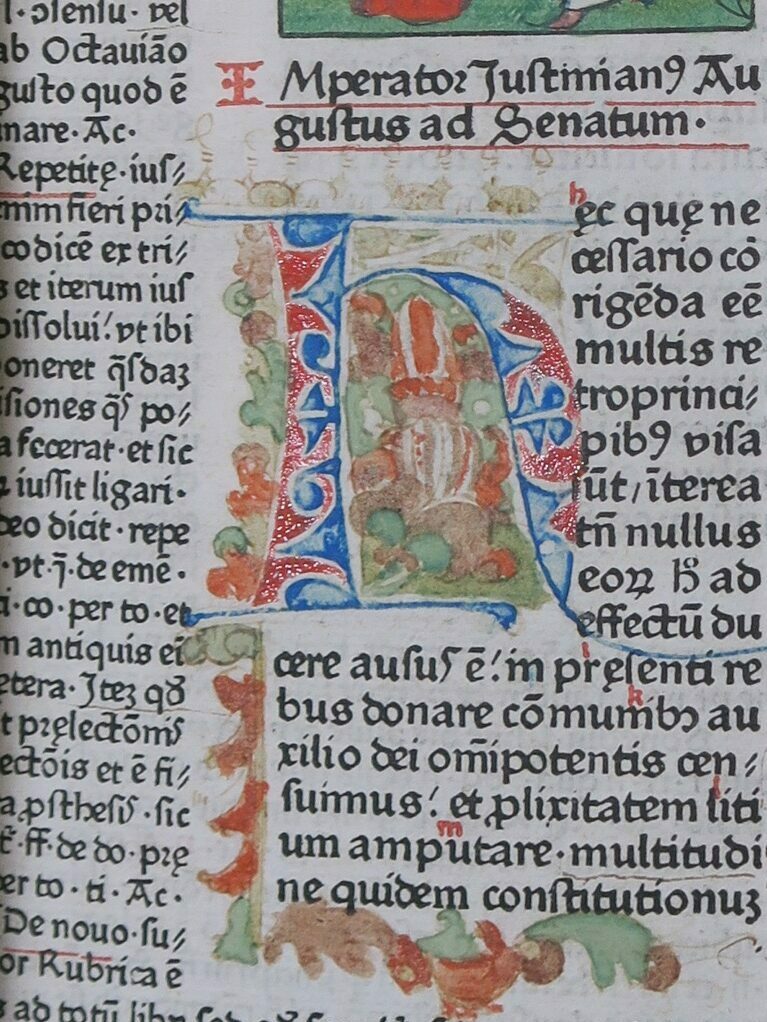 ab Octauiāo
gusto quod ē
nare · Ac ·
Repetitę · ius⸗
enim fieri pri⸗
codicē ex tri⸗
s et iterum ius
dissolui! vt ibi
poneret q̄sdaꝫ
isiones q̄s po⸗
a fecerat · et sic
iussit ligari ·
deo dicit · repe
· vt · j̄ · de emē ·
i · co · per to · et
m antiquis ei
etera · Iteꝫ qđ
t pręlectōnis
ectōis et ē fi⸗
a ꝓsthesis · sic
ff · de do · pzę
per to · ti · Ac ·
De nouo · su⸗
or Rubrica ē
s ad totū libꝛ
IMperatoꝛ Iustinianꝰ Au
gustus ad Senatum ·
H
h
ęc quę ne
cessario cō
rigēda eē
multis re
troprinci⸗
pibꝰ visa
sūt / īterea
tn̄ nullus
eoꝝ h̄ ad
effectū du
cere ausus ē! in pręsenti re
i
k
bus donare cōmunibꝰ au
xilio dei om̄ipotentis cen⸗
l
suimus! et ꝓlixitatem liti
m
um amputare · multitudi
ne quidem constitutionuꝫ